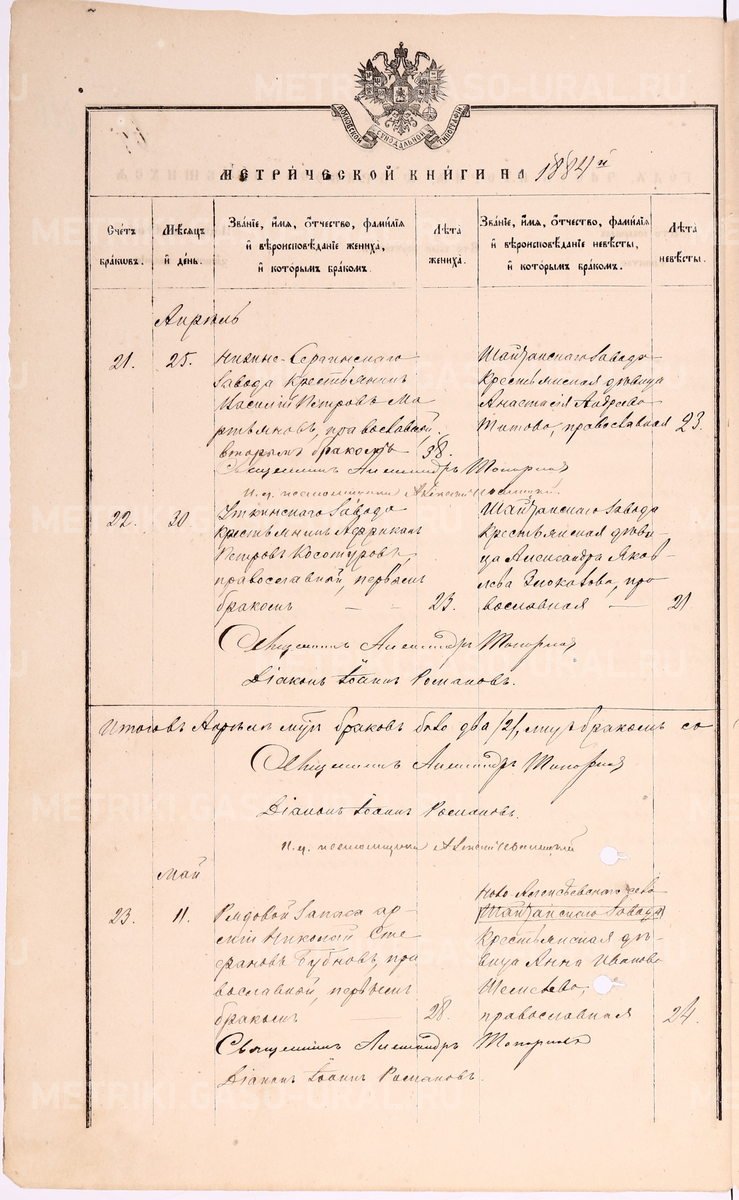 METRIKI.GASO-URAL.RU
МОСКОВСКОЙ СѴНОДАЛЬНОЙ ТИПОГРАФІИ
МЕТРИЧЕСКОЙ КНИГИ НА 1884й
Счетъ браковъ.
Мѣсяцъ и день.
Званіе, имя, отчество, фамилія
и вѣроисповѣданіе жениха,
и которымъ бракомъ.
Лѣта
жениха.
Званіе, имя, отчество, фамилія
и вѣроисповѣданіе невѣсты,
и которымъ бракомъ.
Лѣта
невѣсты.
Апрѣль
21. 25.
Нижне-Сергинскаго
завода крестьянинъ
Василій Петровъ Ма-
ртьяновъ, православной,
вторымъ бракомъ 38.
Шайтанскаго завода
крестьянская дѣвица
Анастасія Андреева
Титова, православная 23.
Священникъ Александръ Топорковъ
И. д. псаломщика Алексѣй
22. 30.
Уткинскаго завода
крестьянинъ Африканъ
Петровъ Косотуровъ,
православной, первымъ
бракомъ 23.
Шайтанскаго завода
крестьянская дѣви-
ца Александра Яков-
лева Злоказова, пра
вославная 21
Священникъ Александръ Топорковъ
Діаконъ Іоаннъ Романовъ.
Итого въ Апрѣлѣ м-цѣ браковъ было два /2/,
Священникъ Александръ Топорковъ
Діаконъ Іоаннъ Романовъ.
И. д. псаломщика Алексѣй
Май
23. 11.
Рядовой запаса ар-
міи Николай Сте
фановъ Бубновъ, пра
вославной, первымъ
бракомъ 28.
Ново
Шайтанскаго завода
крестьянская дѣ-
вица Анна Иванова
Шемелева,
православная 24.
Священникъ Александръ Топорковъ
Діаконъ Іоаннъ Романовъ.